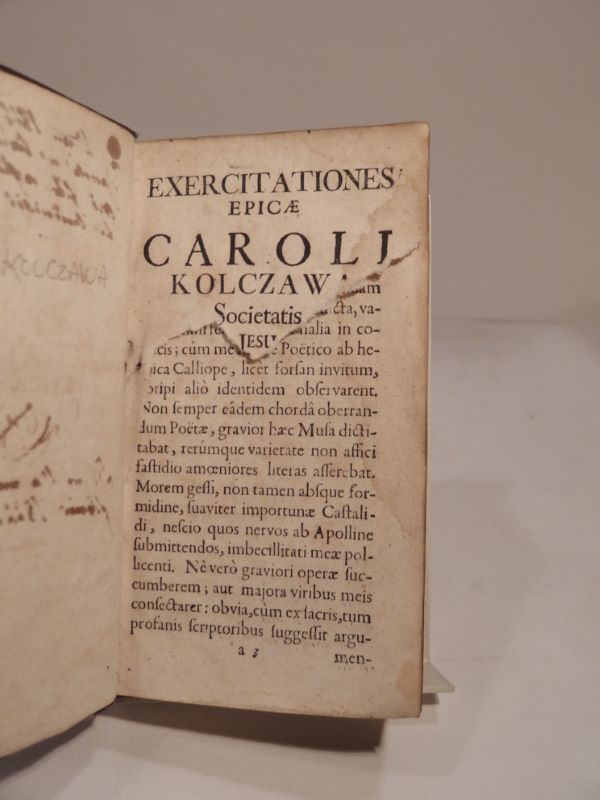 EXERCITATIONES
EPICÆ
CAROLI
KOLCZAW
Societatis
JESU
cta, va-
nalia in co-
cis; cùm me Poëtico ab he-
ica Calliope, licet forſan invitum,
ripi aliò identidem obſervarent.
Non ſemper eâdem chordâ oberran-
dum Poëtæ, gravior hæc Muſa dicti-
tabat, rerúmque varietate non affici
faſtidio amœniores literas aſſerebat.
Morem geſſi, non tamen abſque for-
midine, ſuaviter importunæ Caſtali-
di, neſcio quos nervos ab Apolline
ſubmittendos, imbecillitati meæ pol-
licenti. Nè verò graviori operæ ſuc-
cumberem; aut majora viribus meis
conſectarer: obvia, cùm ex ſacris, tum
profanis ſcriptoribus ſuggeſſit argu-
a 3
men-
KOLCZAWA